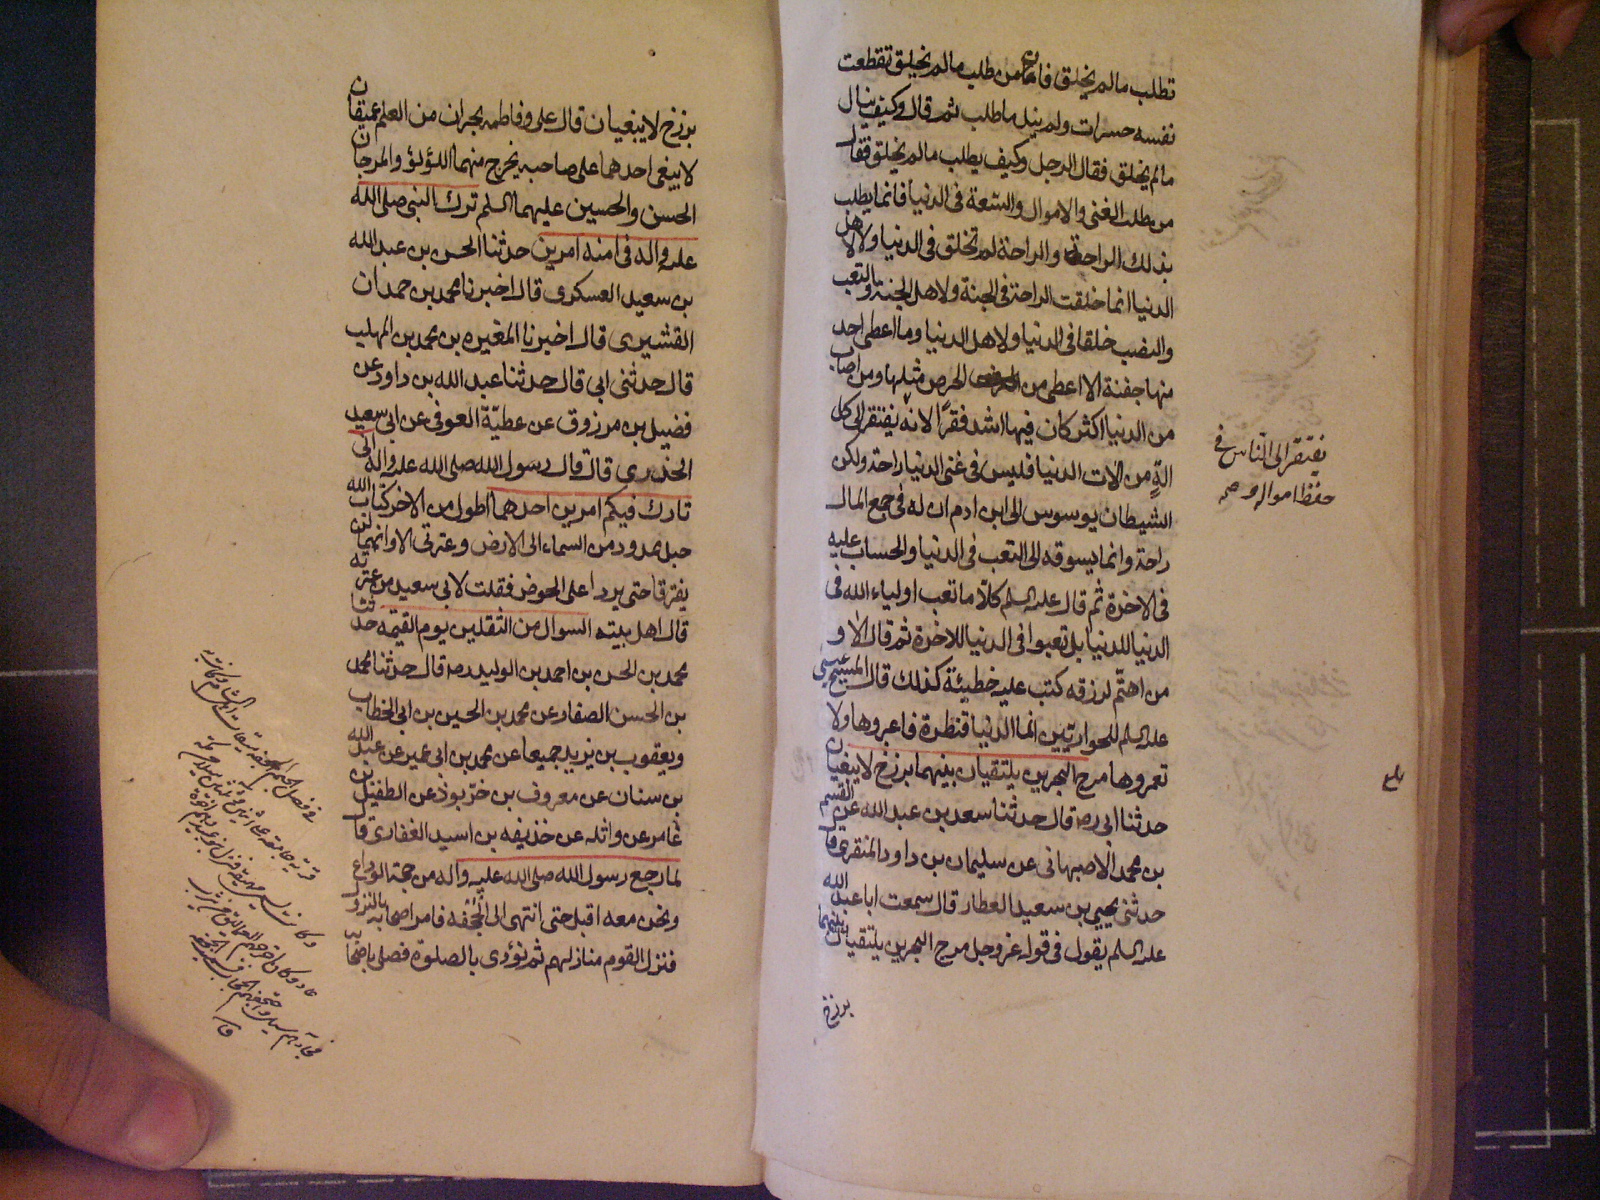 تطلب مالم يخلق فان من يطلب مالم يخلق تقطعت
نفسه حسرات ولم ينل ما طلب ثم قال وكيف ينال
مالم يخلق فقال الرجل وكيف يطلب مالم يخلق فقال
من طلب الغنى والاموال والسعة فى الدنيا فانما يطلب
بذلك الراحة والراحة لم تخلق فى الدنيا ولا لاهل
الدنيا انما خلقت الراحة فى الجنة ولاهل الجنة والتعب
والنصب خلقا فى الدنيا ولاهل الدنيا وما اعطى احد
منها جفنة الا اعطى من الحرص مثليها ومن اصاب
من الدنيا اكثر كان فيها اشد فقرًا لانه يفتقر الى كل
الةٍ من الات الدنيا فليس فى غنى الدنيا راحة ولكن
الشيطان يوسوس الى ابن ادم ان له فى جمع المال
راحة وانما يسوقه الى التعب فى الدنيا والحساب عليه
فى الاخرة ثم قال عليه السلم كلّا ما تعب اولياء الله فى
الدنيا للدنيا بل تعبوا فى الدنيا للاخرة ثم قال الا و
من اهتمّ لرزقه كتب عليه خطيئة كذلك قال المسيح عيسى
عليه السلم للحواريّين انما الدنيا قنطرة فاعبروها ولا
تعمروها مرج البحرين يلتقيان بينهما برزخ لا يبغيان
حدثنا ابى ره قال حدثنا سعد بن عبد الله عن القسم
بن محمد الاصبهانى عن سليمان بن داود المنقرى قال
حدثنى يحيى بن سعيد العطار قال سمعت ابا عبد الله
عليه السلم يقول فى قوله عز وجل مرج البحرين يلتقيان بينهما
برزخ
يفتقر الى الناس فى
حفظ امواله صح
بلغ
برزخ لا يبغيان قال على وفاطمه بحران من العلم عميقان
لا يبغى احدهما على صاحبه يخرج منهما اللؤلؤ والمرجان
الحسن والحسين عليهما السلم ترك النبى صلى الله
عليه واله فى امته امرين حدثنا الحسن بن عبد الله
بن سعيد العسكرى قال اخبرنا محمد بن حمدان
القشيرى قال اخبرنا المغيره بن محمد بن المهلب
قال حدثنى ابى قال حدثنا عبد الله بن داود عن
فضيل بن مرزوق عن عطيّة العوفى عن ابى سعيد
الخدرى قال قال رسول الله صلى الله عليه واله انى
تارك فيكم امرين احدهما اطول من الاخر كتاب الله
حبل ممدود من السماء الى الارض وعترتى الا وانهما لن
يفترقا حتى يردا على الحوض فقلت لابى سعيد من عترته
قال اهل بيته السوال من الثقلين يوم القيمه حدثنا
محمد بن الحسن بن احمد بن الوليد ره قال حدثنا محمد
بن الحسن الصفار عن محمد بن الحسين بن ابى الخطاب
ويعقوب بن يزيد جميعا عن محمد بن ابى عمير عن عبد الله
بن سنان عن معروف بن خرّبوذ عن الطفيل بن
عامر بن واثله عن حذيفه بن اسيد الغفارى قال
لما رجع رسول الله صلى الله عليه واله من حجة الوداع
ونحن معه اقبل حتى انتهى الى الجُحْفه فامر اصحابه بالنزول
فنزل القوم منازلهم ثم نؤدى بالصلوة فصلى باصحابه